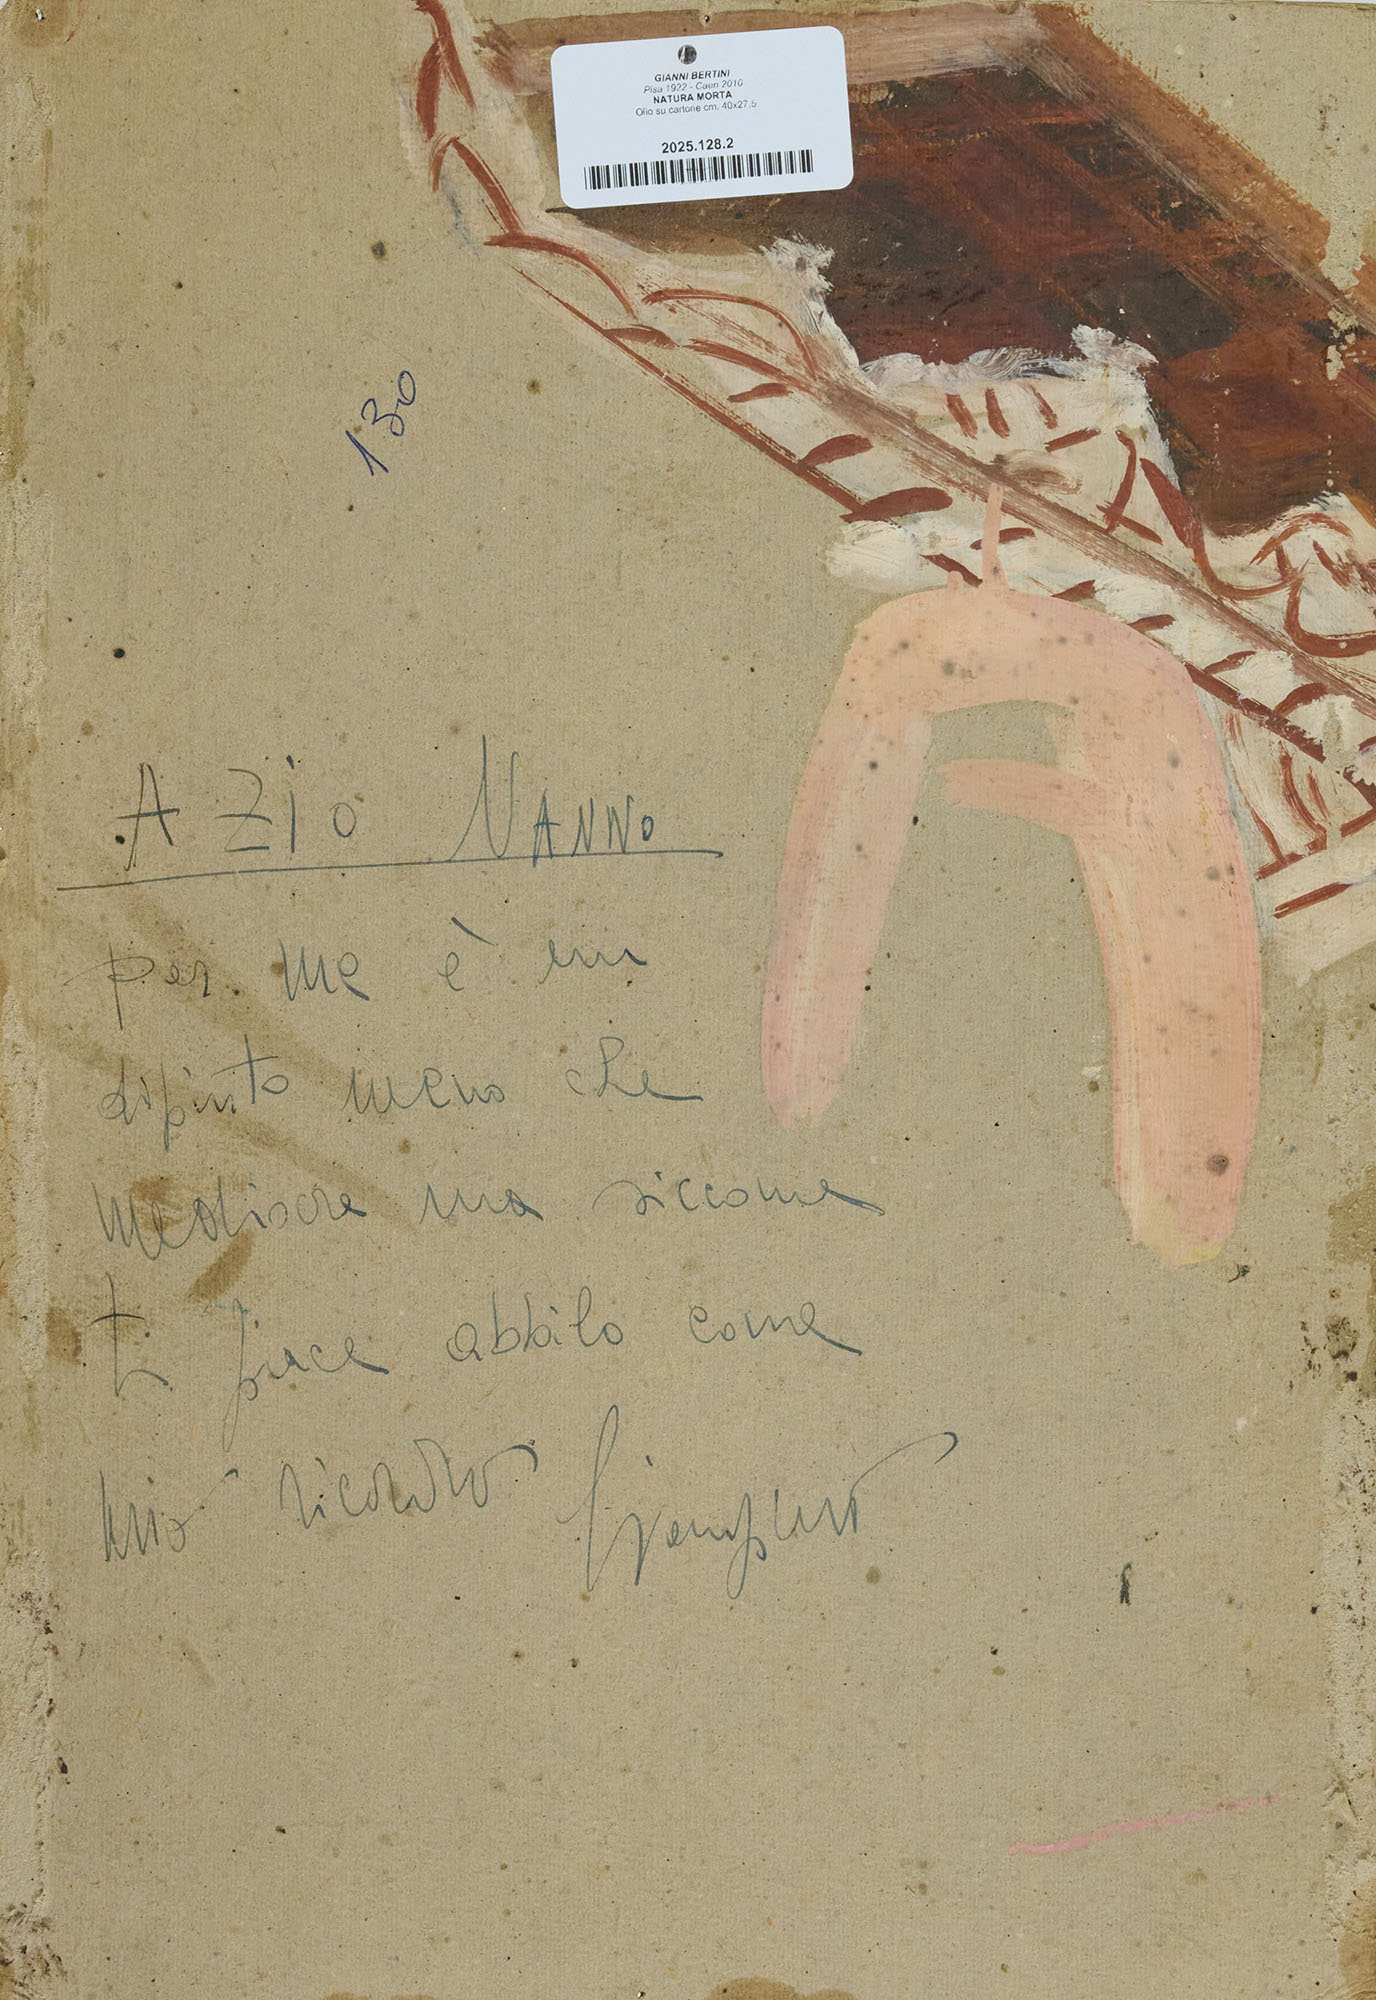 GIANNI BERTINI
Pisa 1922 - Caen 2010
NATURA MORTA
Olio su cartone cm. 40x27,5
2025.128.2
130
A Zio NANNO
per me è un
dipinto meno che
mediocre ma siccome
ti piace abbilo come
mio ricordo